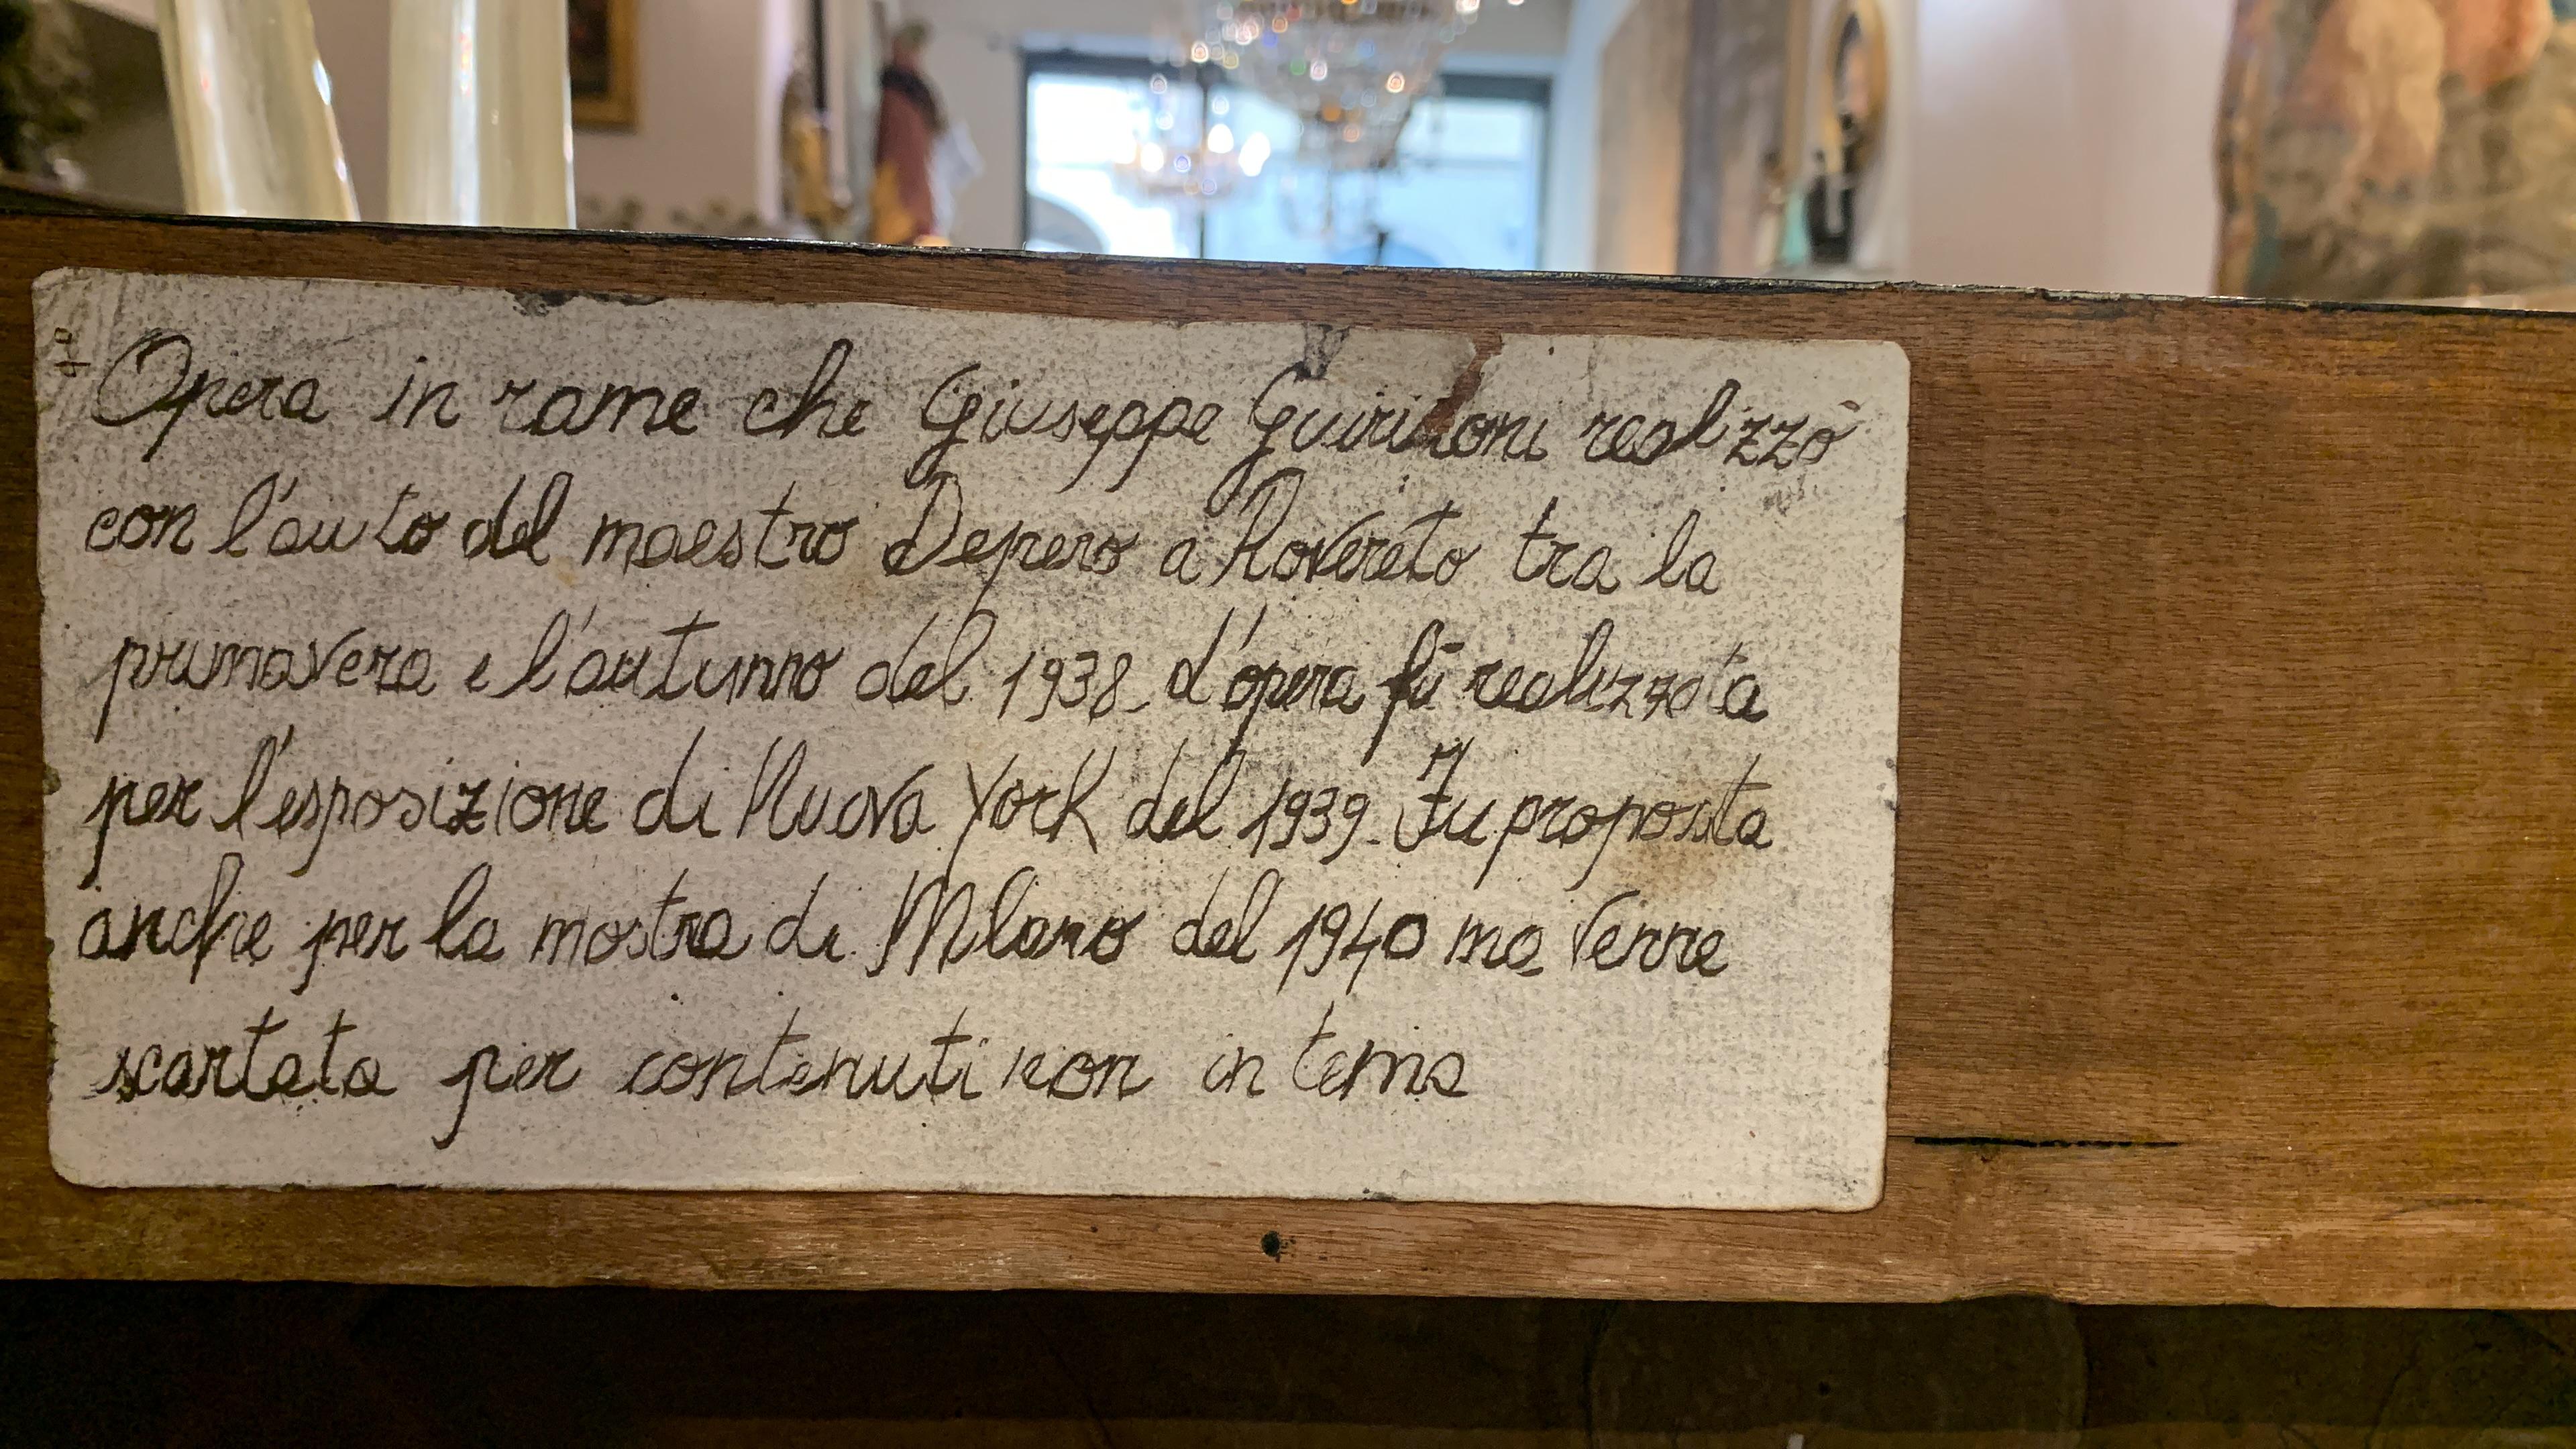 Opera in rame che Giuseppe realizzò
con l'auto del maestro Depero a Rovereto tra la
primavera e l'autunno del 1938_ l'opera fù realizzata
per l'esposizione di Nuova York del 1939_ Fu proposta
anche per la mostra di Milano del 1940 ma venne
scartata per contenuti non in tema